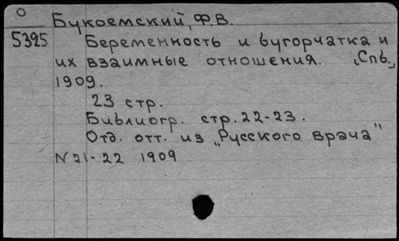 О
Букоемский, Ф.В.
5395 Беременность и бугорчатка и
их взаимные отношения. Спб,
1909.
23 стр.
Библиогр. стр. 22-23.
Отд. отт. из „Русского врача"
N 21-22 1909